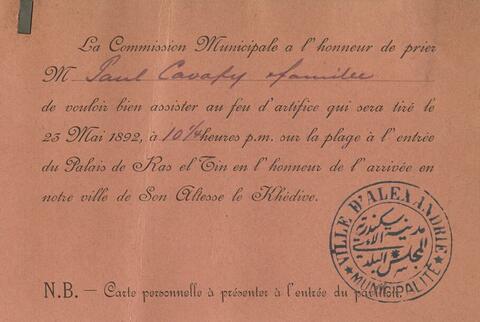 La Commission Municipale a l'honneur de prier
M Paul Cavafy & famille
de vouloir bien assister au feu d'artifice qui sera tiré le
23 Mai 1892, à 10¼ heures p.m. sur la plage à l'entrée
du Palais de Ras el Tin en l'honneur de l'arrivée en
notre ville de Son Altesse le Khédive.
N.B. — Carte personnelle à présenter à l'entrée du pavillon.
VILLE D'ALEXANDRIE
MUNICIPALITÉ
المجلس البلدي